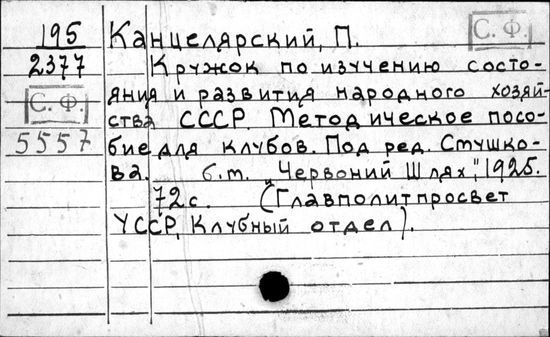 195
2377
С. Ф.
5557
С. Ф.
Канцелярский, П.
Кружок по изучению состо-
яния и развития народного хозяй-
ства СССР. Методическое посо-
бие для клубов. Под ред. Стушко-
ва. б.т. „Червоний Шлях", 1925.
72 с. (Главполитпросвет
УССР, Клубный отдел).